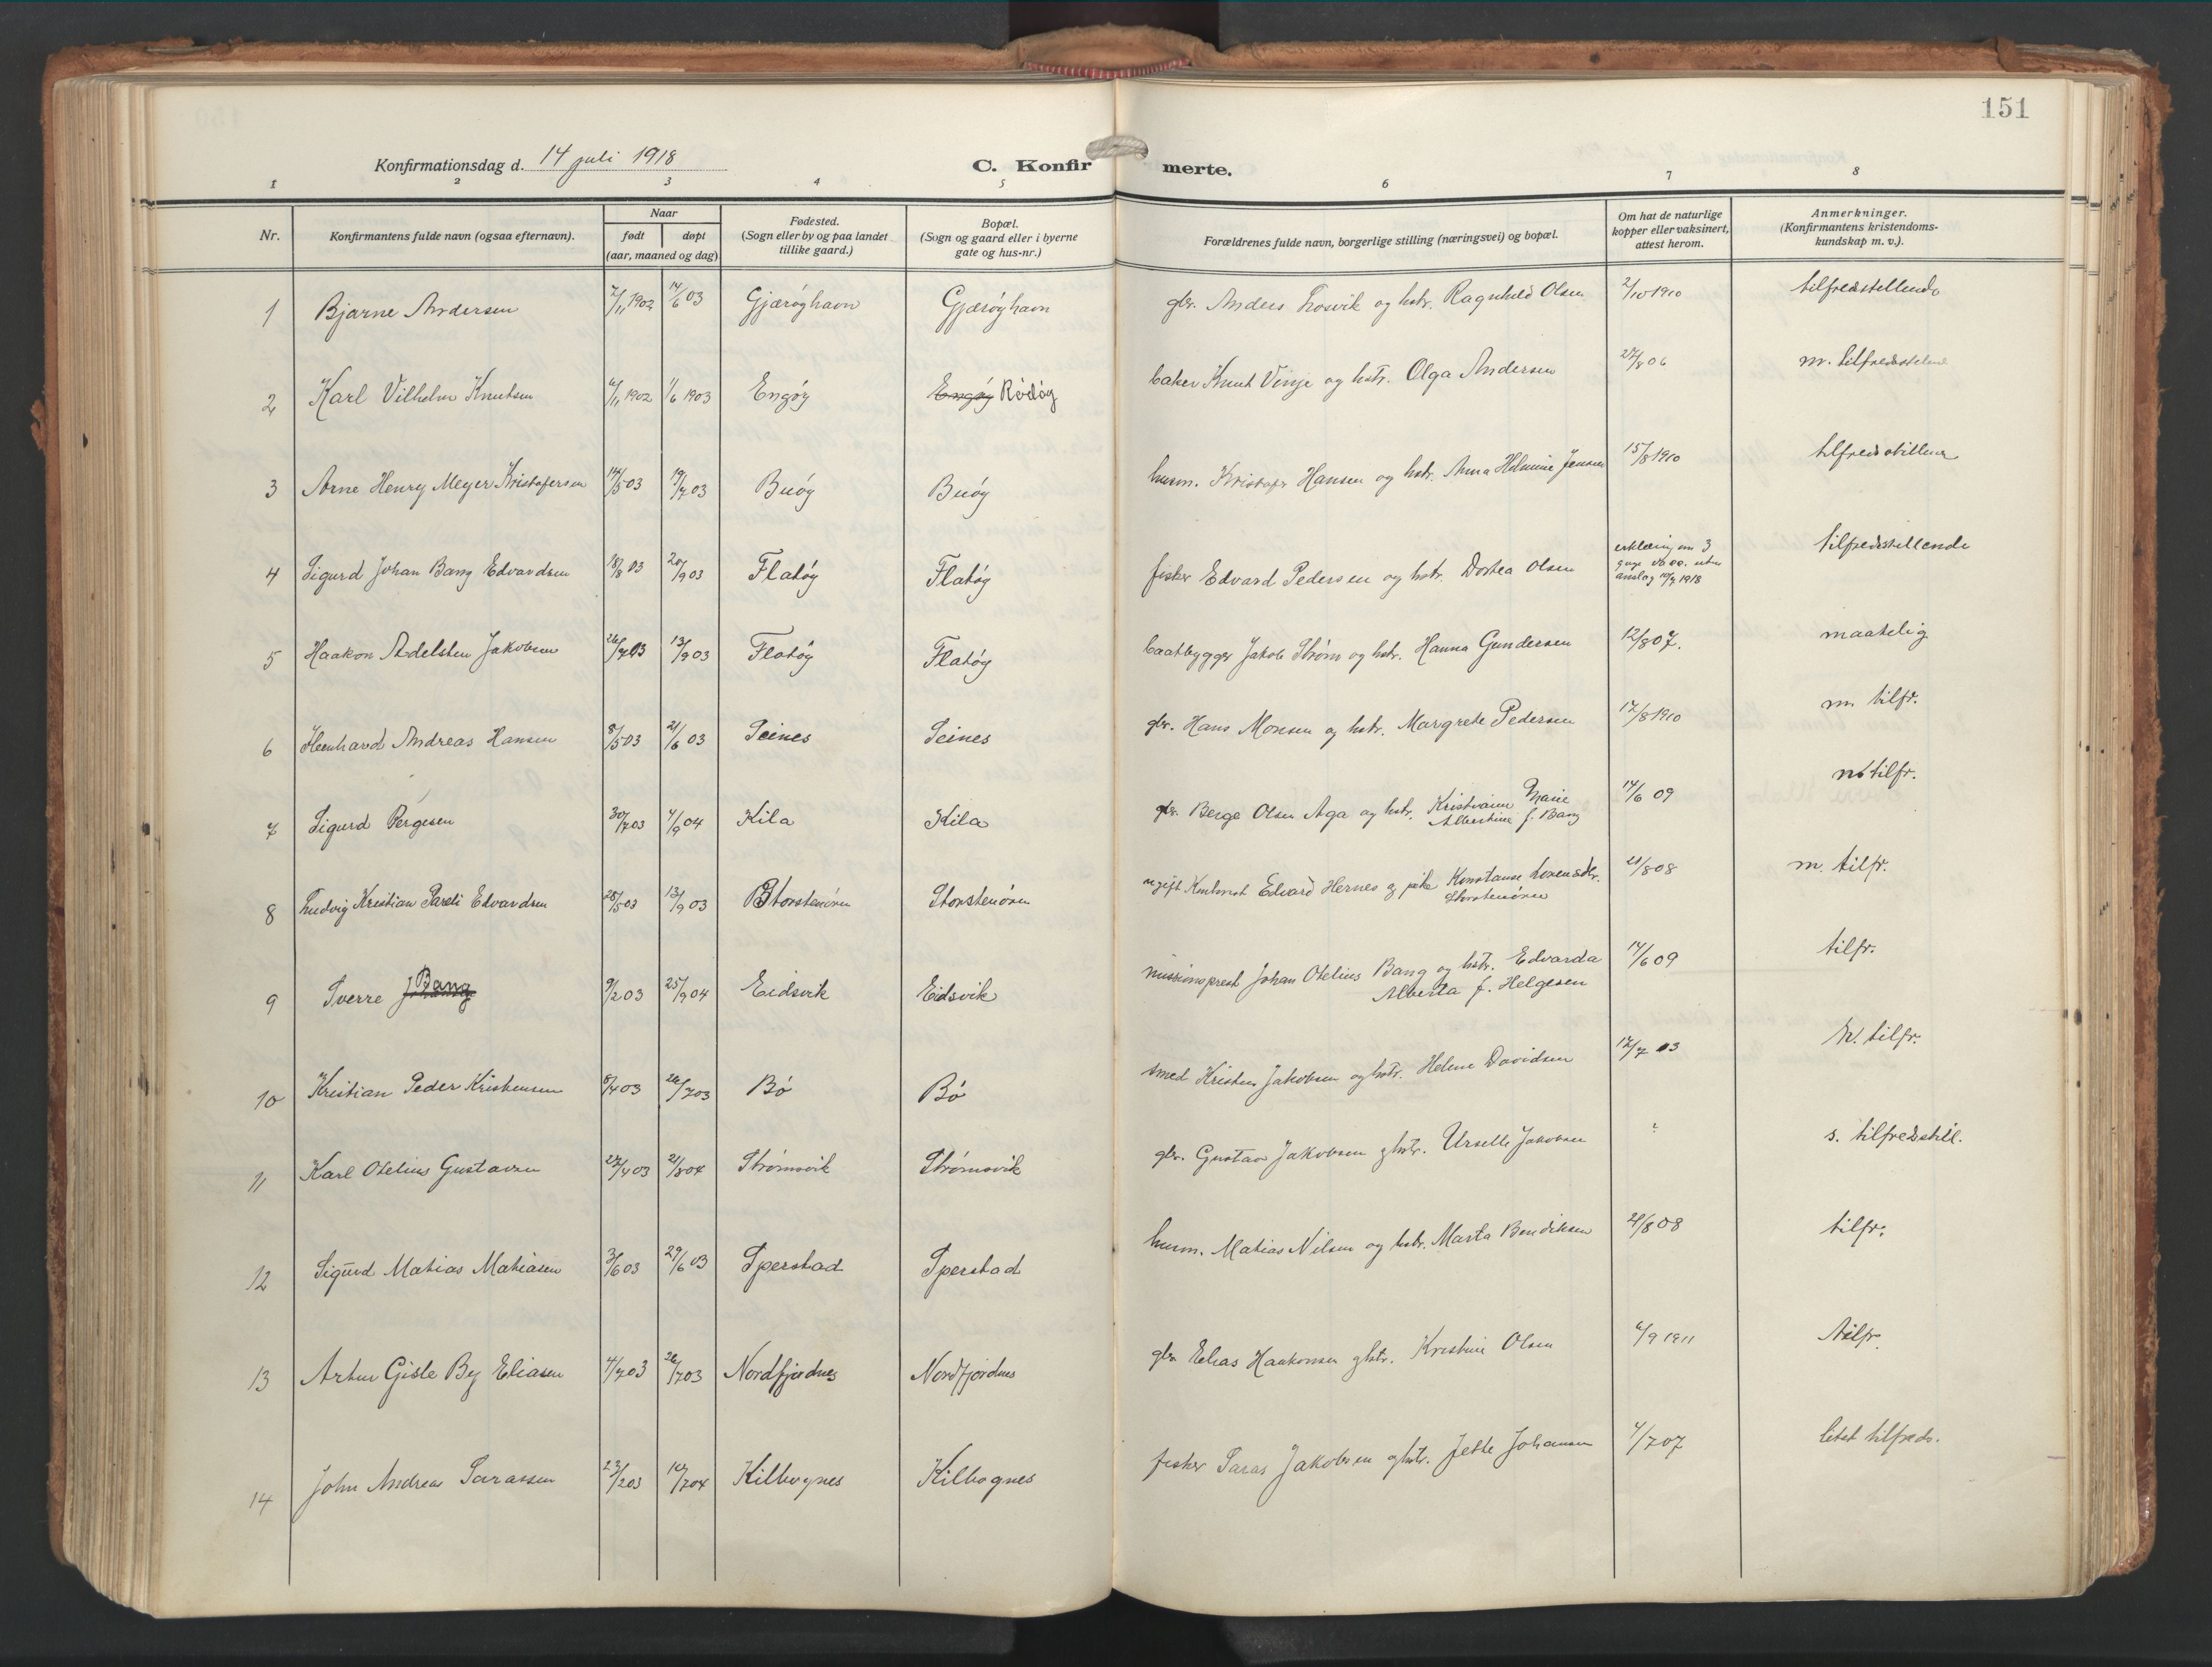 151
Konfirmationsdag d. 14 juli 1918
C. Konfirmerte.
1 2 3 4 5 6 7 8
Nr.
Konfirmantens fulde navn (ogsaa efternavn).
Naar
født døpt
(aar, maaned og dag)
Fødested.
(Sogn eller by og paa landet
tillike gaard.)
Bopæl.
(Sogn og gaard eller i byerne
gate og hus-nr.)
Forældrenes fulde navn, borgerlige stilling (næringsvei) og bopæl.
Om hat de naturlige
kopper eller vaksinert,
attest herom.
Anmerkninger.
(Konfirmantens kristendoms-
kundskap m. v.).
1 Bjarne Andersen 7/11 1902 14/6 03 Gjærøyhavn Gjærøyhavn gbr. Anders Losvik og hstr. Ragnhild Olsen 2/10 1910 tilfredsstillende
2 Karl Vilhelm Knutsen 6/11 1902 1/6 1903 Engøy Engøy Rødøy baker Knut Vinje og hstr. Olga Andersen 27/8 06 m. tilfredsstillend
3 Arne Henry Meyer Kristofersen 14/5 03 19/7 03 Buøy Buøy husm. Kristofr Hansen og hstr. Anna Helmine Jensen 15/8 1910 tilfredsstillend
4 Sigurd Johan Bang Edvardsen 18/8 03 20/9 03 Flatøy Flatøy fisker Edvard Pedersen og hstr. Dortea Olsen erklæring om 3
gange vacc. uten
anslag 10/7 1918 tilfredsstillende
5 Haakon Adelsten Jakobsen 26/7 03 13/9 03 Flatøy Flatøy baatbygger Jakob Strøm og hstr. Hanna Gundersen 12/8 07. maatelig
6 Henhard Andreas Hansen 8/5 03 21/6 03 Seines Seines gbr. Hans Monsen og hstr. Margrete Pedersen 17/8 1910 m. tilfr.
7 Sigurd Bergesen 30/7 03 4/9 04 Kila Kila gbr. Berge Olsen Aga og hstr. Kristianna Marie
Albertine f. Bang 14/6 09 m tilfr.
8 Ludvig Kristian Pareli Edvardsen 28/5 03 13/9 03 Storstenøren Storstenøren ugift Edvard Hernes og pike Konstanse Lorensdtr.
Storstenøren 21/8 08 m. tilfr.
9 Sverre Bang 9/2 03 25/9 04 Eidsvik Eidsvik missionsprest Johan Otelius Bang og hstr. Edvarda
Alberta f. Helgesen 14/6 09 tilfr.
10 Kristian Peder Kristensen 8/4 03 26/7 03 Bø Bø smed Kristen Jakobsen og hstr. Helene Davidsen 17/7 13 M. tilfr.
11 Karl Otelius Gustavsen 27/4 03 21/8 04 Strømsvik Strømsvik gbr. Gustav Jakobsen og hstr. Urselle Jakobsen ? s. tilfredsstil.
12 Sigurd Matias Matiasen 3/6 03 29/6 03 Sperstad Sperstad husm. Matias Nilsen og hstr. Marta Bendiksen 21/8 08 tilfr.
13 Artur Gisle By Eliasen 4/7 03 26/7 03 Nordfjordnes Nordfjordnes gbr Elias Haakonsen og hstr. Kristine Olsen 6/9 1911 tilfr.
14 John Andreas Sarassen 23/2 03 10/7 04 Kilbognes Kilbognes fisker Saras Jakobsen og hstr. Jette Johansen 4/7 07 litet tilfreds.